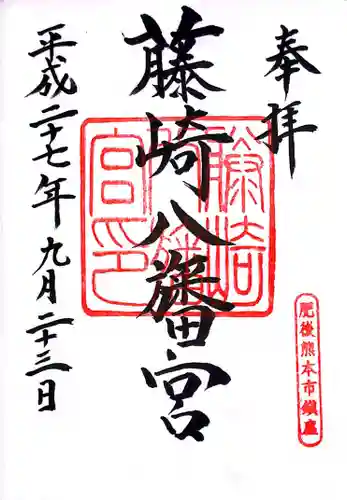 奉拝
肥後熊本市鎮座
藤崎八旛宮
藤崎
八旛
宮印
平成二十七年九月二十三日